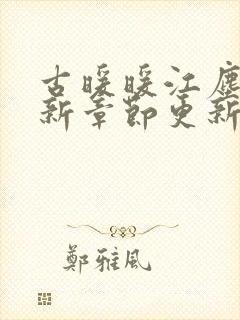 古暖暖江塵
新章節更新
鄭雅風